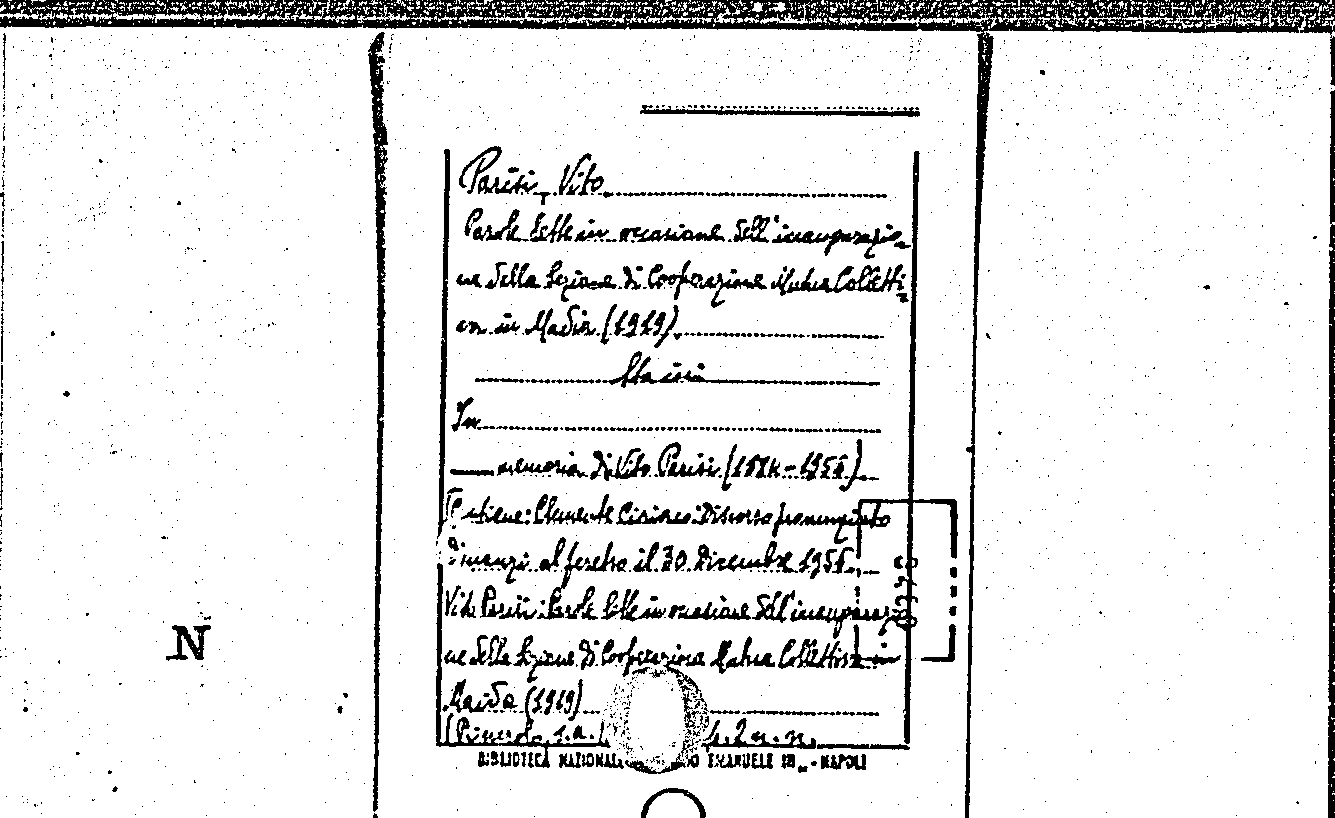 Parisi, Vito.
Parole lette in occasione dell'inaugurazio=
ne della Sezione di Cooperazione Mutua Colletti=
va in Maida (1919).
Sta in:
In
memoria di Vito Parisi (1884-1955).
Contiene: Clemente Ciriaco: Discorso pronunziato
dinanzi al feretro il 30 Dicembre 1955.
Vito Parisi: Parole lette in occasione dell'inaugurazio
ne della Sezione di Cooperazione Mutua Collettiva in
Maida (1919)
s.a. 2 n.n.
BIBLIOTECA NAZIONALE EMANUELE III - NAPOLI
N